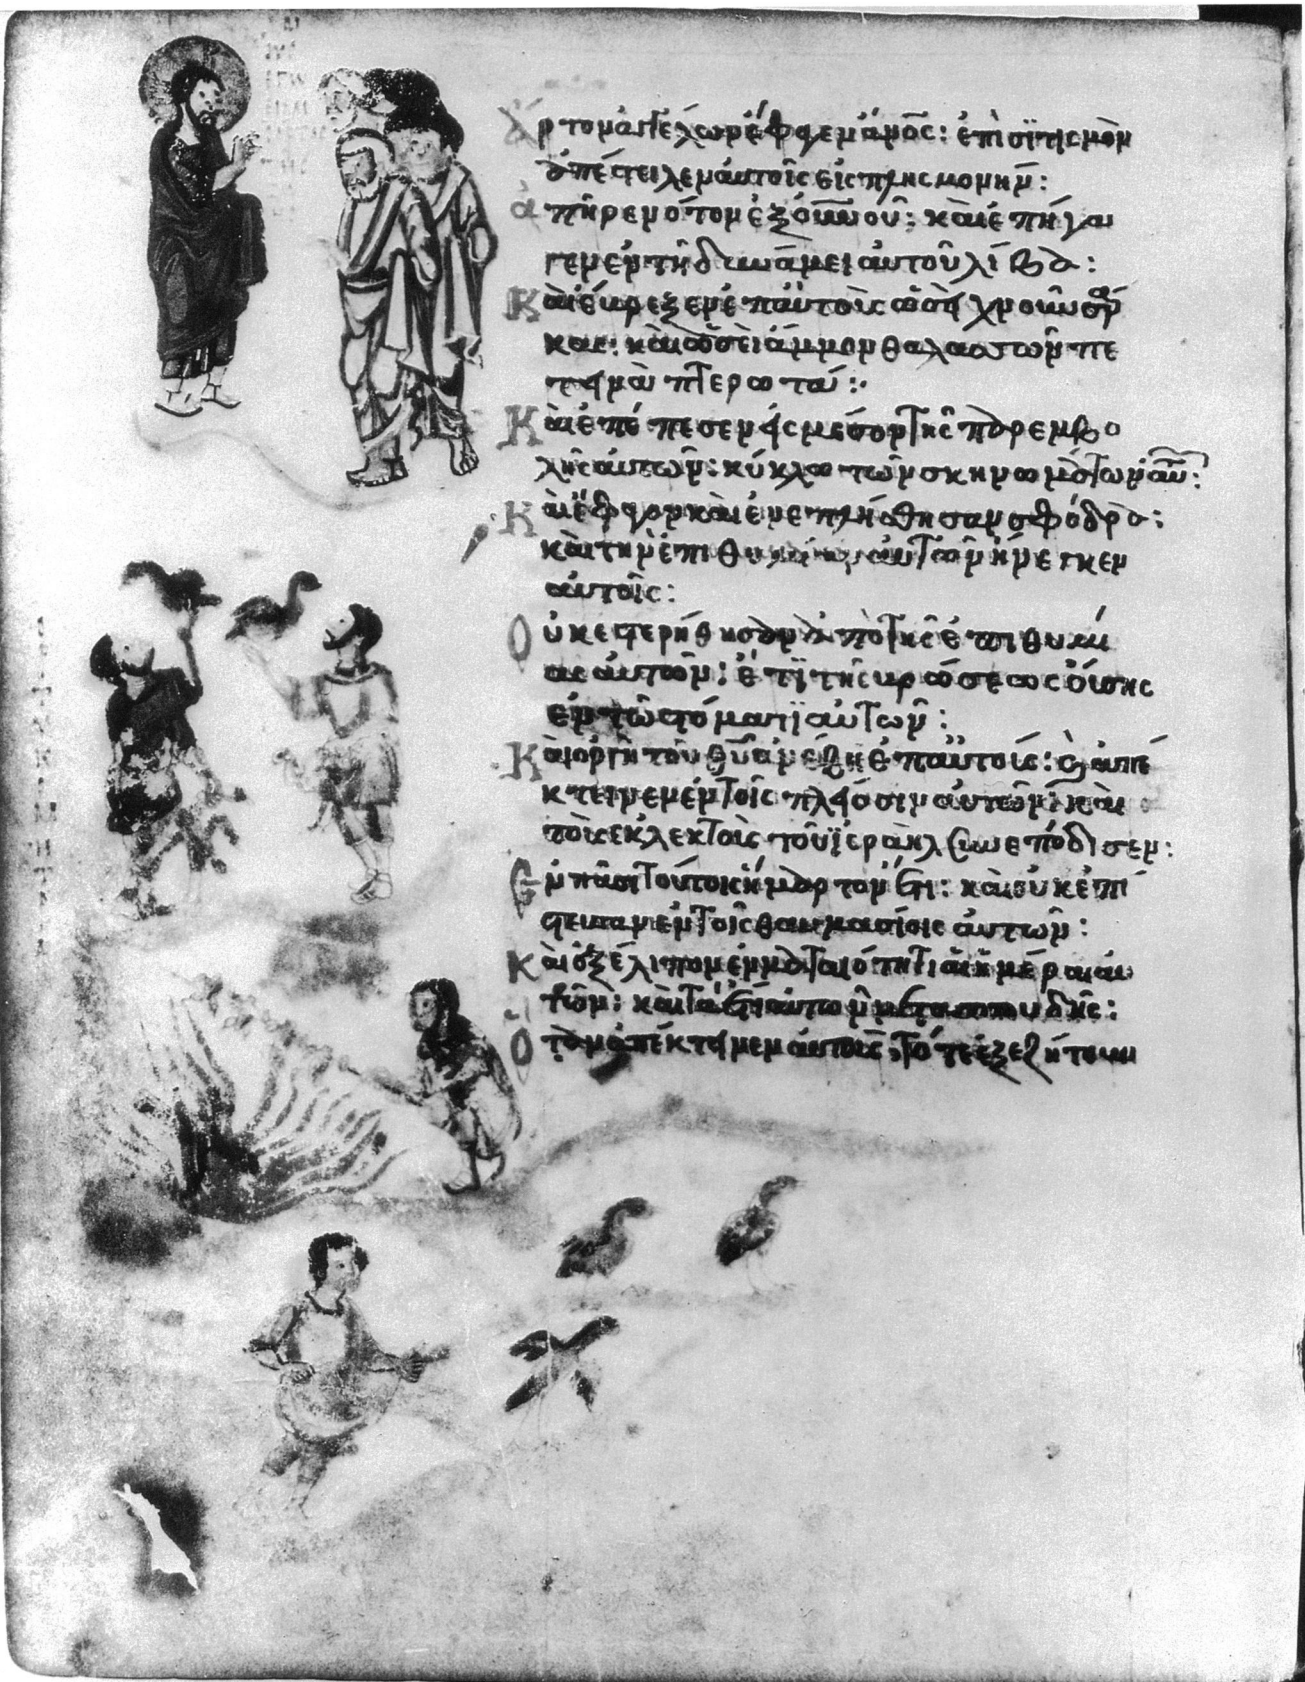 ἄρτον ἀγγέλων ἔφαγεν ἄνο̅ς: ἐπισϊτισμὸν
ἀπέστειλεν αὐτοῖς εἰς πλησμονήν:
ἀπῆρεν νότον ἐξ οὐνοῦ: καὶ ἐπήγα
γεν ἐν τῆ δυνάμει αὐτοῦ λίβα:
Καὶ ἔβρεξεν ἐπ αὐτοὺς ὡσεὶ χοῦν σάρ
κας: καὶ ὡσεὶ ἄμμον θαλασσῶν πε
τεινὰ πτερωτά:
Καὶ ἐπέπεσεν εἰς μέσον τῆς παρεμβο
λῆς αὐτῶν: κύκλω τῶν σκηνωμάτων αὐ:
Καὶ ἔφαγον καὶ ἐνεπλήσθησαν σφόδρα:
καὶ τὴν ἐπιθυμίαν αὐτῶν ἤνεγκεν
αὐτοῖς:
Οὐκ ἐστερήθησαν ἀπὸ τῆς ἐπιθυμί
ας αὐτῶν: ἔτϊ τῆς βρώσεως οὔσης
ἐν τῶ στόματϊ αὐτῶν:
Καὶ ὀργὴ τοῦ θυ̅ ἀνέβη ἐπ αὐτοὺς: καὶ ἀπέ
κτεινεν ἐν τοῖς πλείοσιν αὐτῶν: καὶ
τοὺς ἐκλεκτοὺς τοῦ ϊσραὴλ συνεπόδισεν:
Ἐν πᾶσι τούτοις ἥμαρτον ἔτι: καὶ οὐκ ἐπί
στευσαν ἐν τοῖς θαυμασίοις αὐτοῦ:
Καὶ ἐξέλιπον ἐν ματαιότητι αἱ ἡμέραι αὐ
τῶν: καὶ τὰ ἔτη αὐτῶν μετα σπουδῆς:
Ὅταν ἀπέκτεινεν αὐτοὺς, τότε ἐξεζήτουν